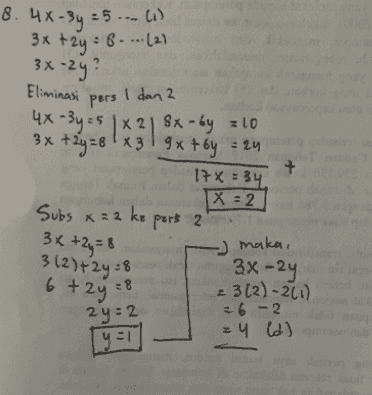 8. 4x - 3y = 5 .... (1)
3x + 2y = 8 .... (2)
3x - 2y ?
Eliminasi pers 1 dan 2
4x - 3y = 5 | x 2 | 8x - 6y = 10
3x + 2y = 8 | x 3 | 9x + 6y = 24
+
17x = 34
x = 2
Subs x = 2 ke pers 2
3x + 2y = 8
3(2) + 2y = 8
6 + 2y = 8
2y = 2
y = 1
maka,
3x - 2y
= 3(2) - 2(1)
= 6 - 2
= 4 (d)